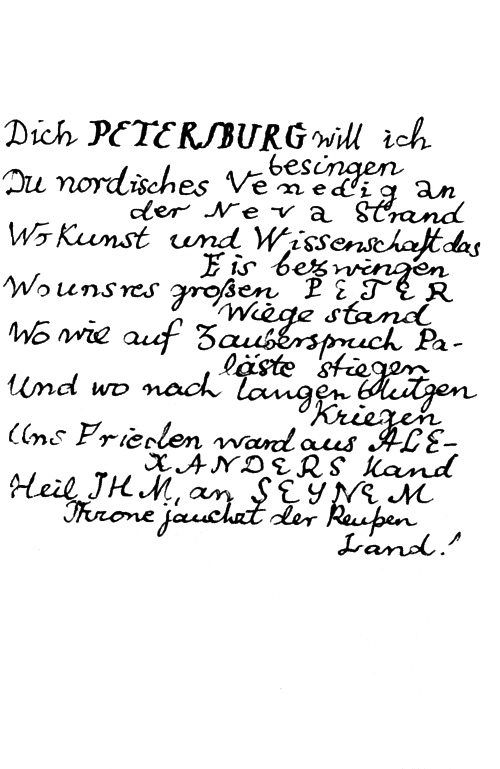 Dich PETERSBURG will ich
besingen
Du nordisches Venedig an
der Neva Strand
Wo Kunst und Wissenschaft das
Eis bezwingen
Wo unsres großen PETER
Wiege stand
Wo wie auf Zauberspruch Pa-
läste stiegen
Und wo nach langen blutgen
Kriegen
Uns Frieden ward aus ALE-
XANDERS Hand
Heil IHM, an SEYNEM
Throne jauchzt der Reußen
Land!